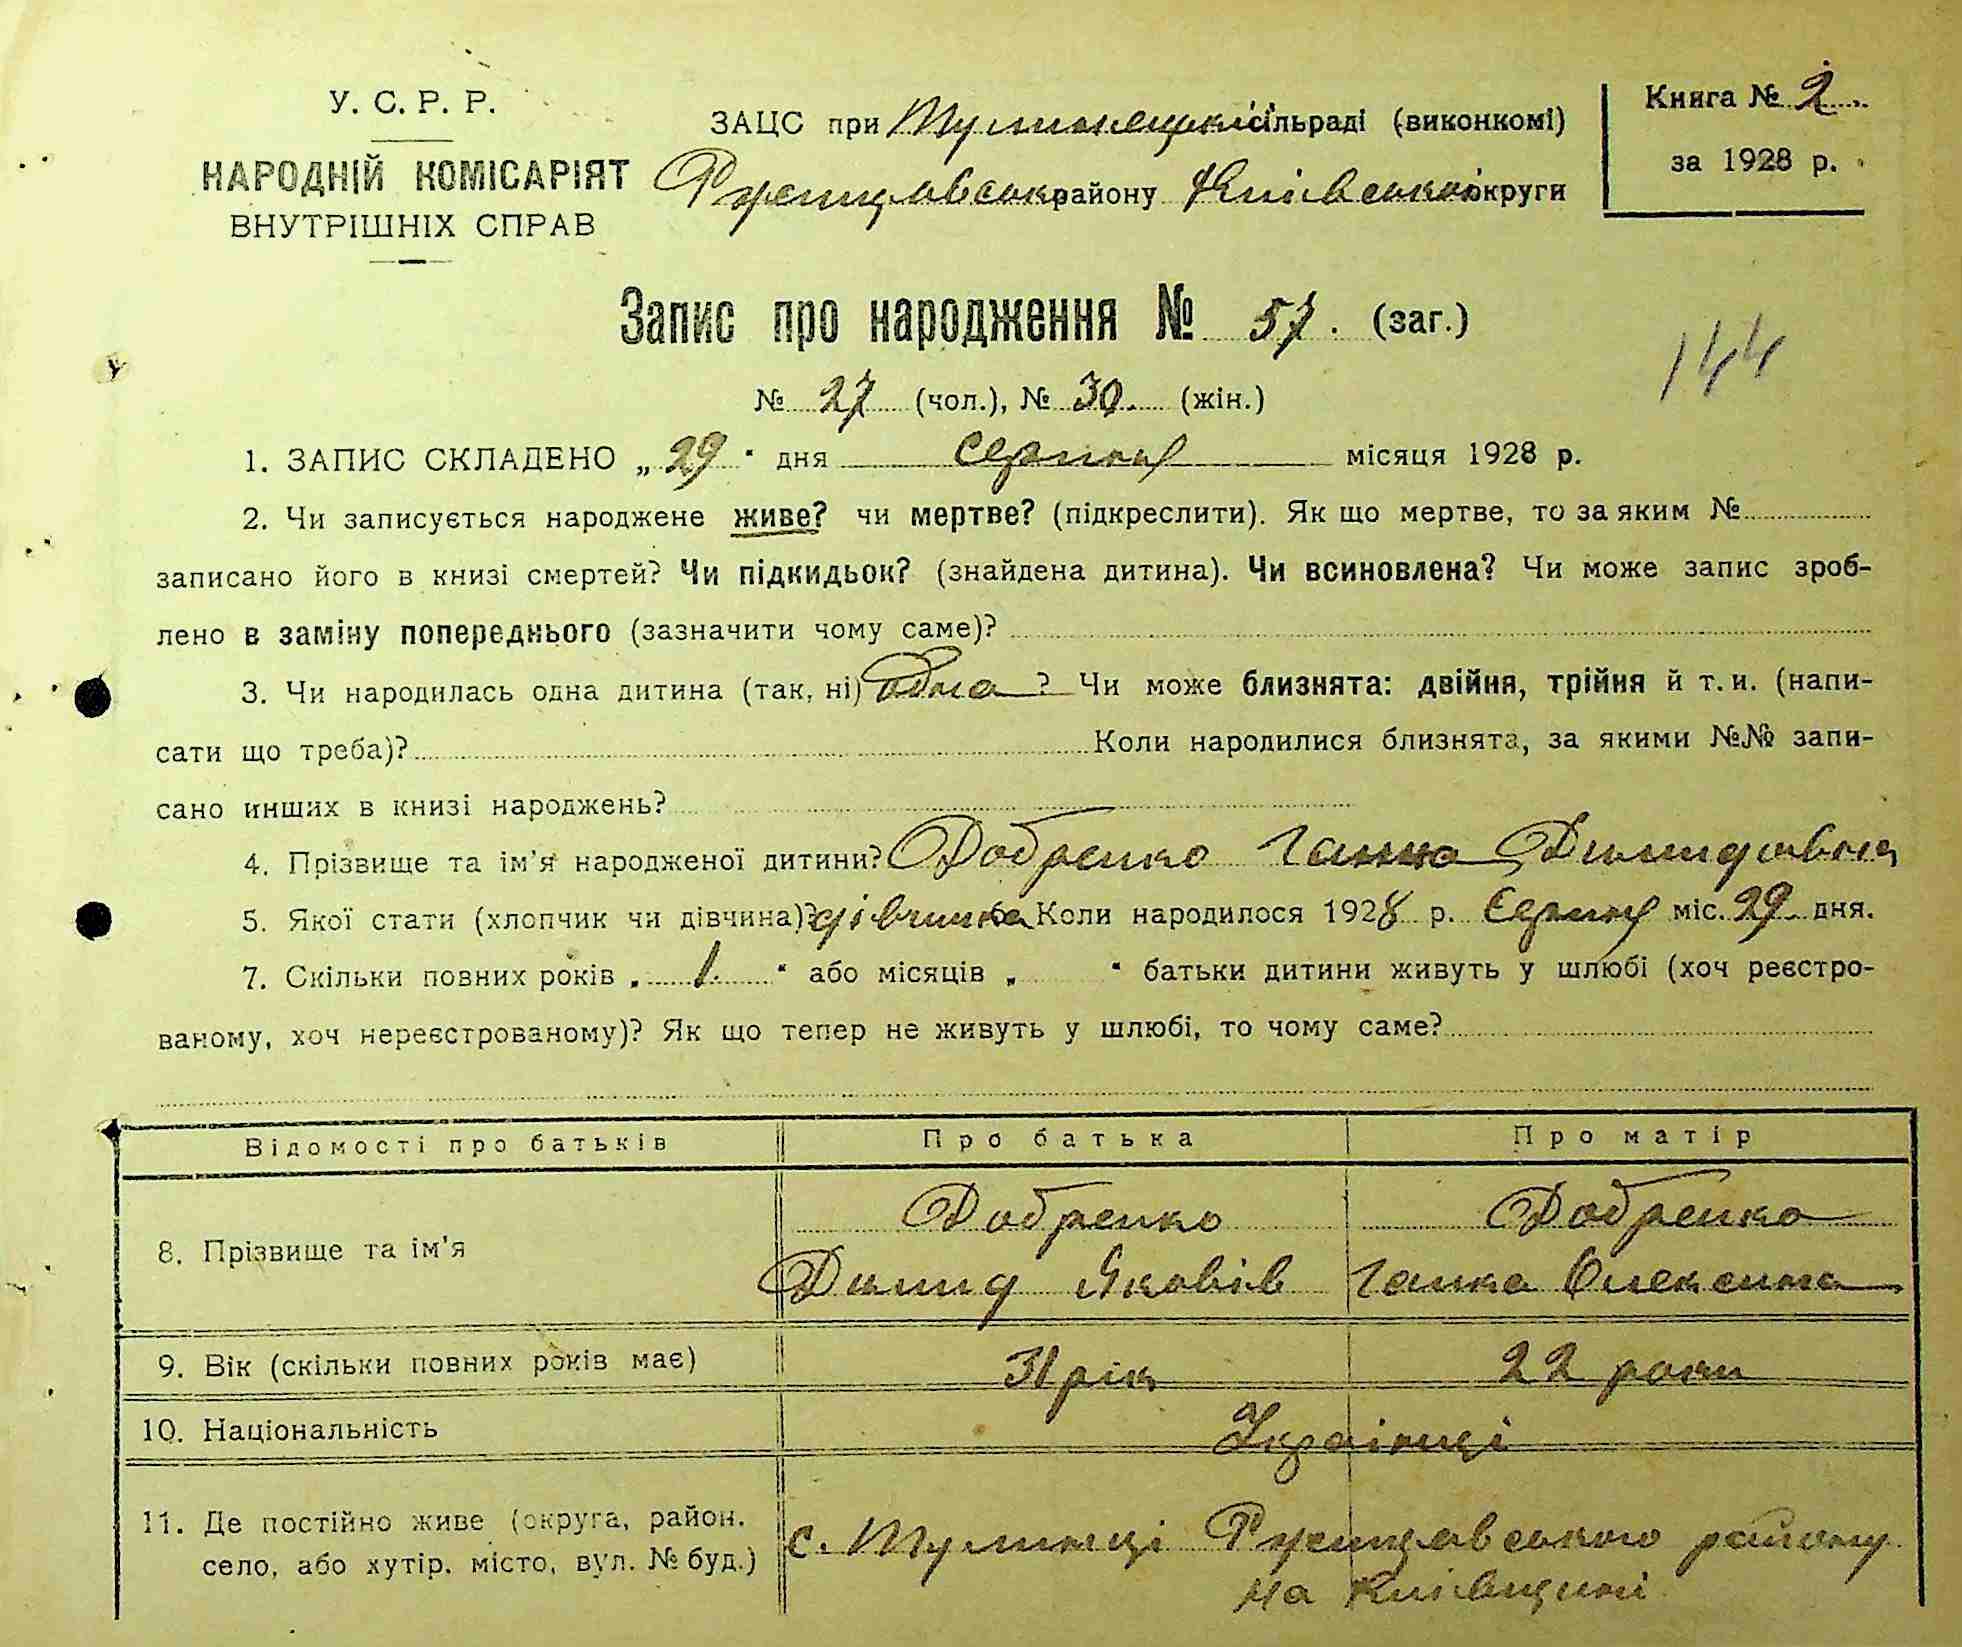 У. С. Р. Р.
НАРОДНІЙ КОМІСАРІЯТ
ВНУТРІШНІХ СПРАВ
ЗАЦС при Тулинецькій сільраді (виконкомі)
Ржищівськ району Київської округи
Книга № 2
за 1928 р.
Запис про народження № 57. (заг.)
144
№ 27 (чол.), № 30. (жін.)
1. ЗАПИС СКЛАДЕНО „29" дня серпня місяця 1928 р.
2. Чи записується народжене живе? чи мертве? (підкреслити). Як що мертве, то за яким №
записано його в книзі смертей? Чи підкидьок? (знайдена дитина). Чи всиновлена? Чи може запис зроб-
лено в заміну попереднього (зазначити чому саме)?
3. Чи народилась одна дитина (так, ні) одна ? Чи може близнята: двійня, трійня й т. и. (напи-
сати що треба)? Коли народилися близнята, за якими №№ запи-
сано инших в книзі народжень?
4. Прізвище та ім'я народженої дитини? Добренко Ганна Димидівна
5. Якої стати (хлопчик чи дівчина)? дівчинка Коли народилося 1928 р. Серпня міс. 29 дня.
7. Скільки повних років „ 1. " або місяців „ " батьки дитини живуть у шлюбі (хоч реєстро-
ваному, хоч нереєстрованому)? Як що тепер не живуть у шлюбі, то чому саме?
Відомості про батьків Про батька Про матір
8. Прізвище та ім'я
Добренко Добренко
Димид Яковів Ганна Олексина
9. Вік (скільки повних років має) 31 рік 22 роки
10. Національність Українці
11. Де постійно живе (округа, район.
село, або хутір. місто, вул. № буд.)
с. Тулинці Ржищівського району
на Київщині